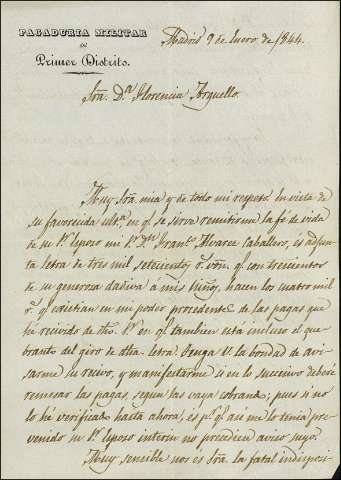 PAGADURIA MILITAR
del
Primer Distrito.
Madrid 9 de Enero de 1844.
Sra. D.ª Florencia Arguello.
Muy Sra. mia y de todo mi respeto en vista de
su favorecida ult.ª en q.e se sirve remitirme la fé de vida
de su S.r Esposo mi S.r D.n Fran.co Alvarez Caballero, és adjunta
letra de tres mil setecientos r.s von. q.e con trescientos
de su generosa dadiva á mis Niños, hacen los cuatro mil
r.s q.e existian en mi poder procedentes de las pagas que
hé recivido de dho. S.r en q.e tambien está incluso el que
branto del giro de dha. letra. Tenga V. la bondad de avi-
sarme su recivo, y manifestarme si en lo succesivo deberé
remesar las pagas, segun las vaya cobrando; pues si no
lo hé verificado hasta ahora, és p.r q.e asi me lo tenia pre-
venido su S.r Esposo interin no precediera aviso suyo.
Muy sensible nos és Sra. la fatal indisposi-